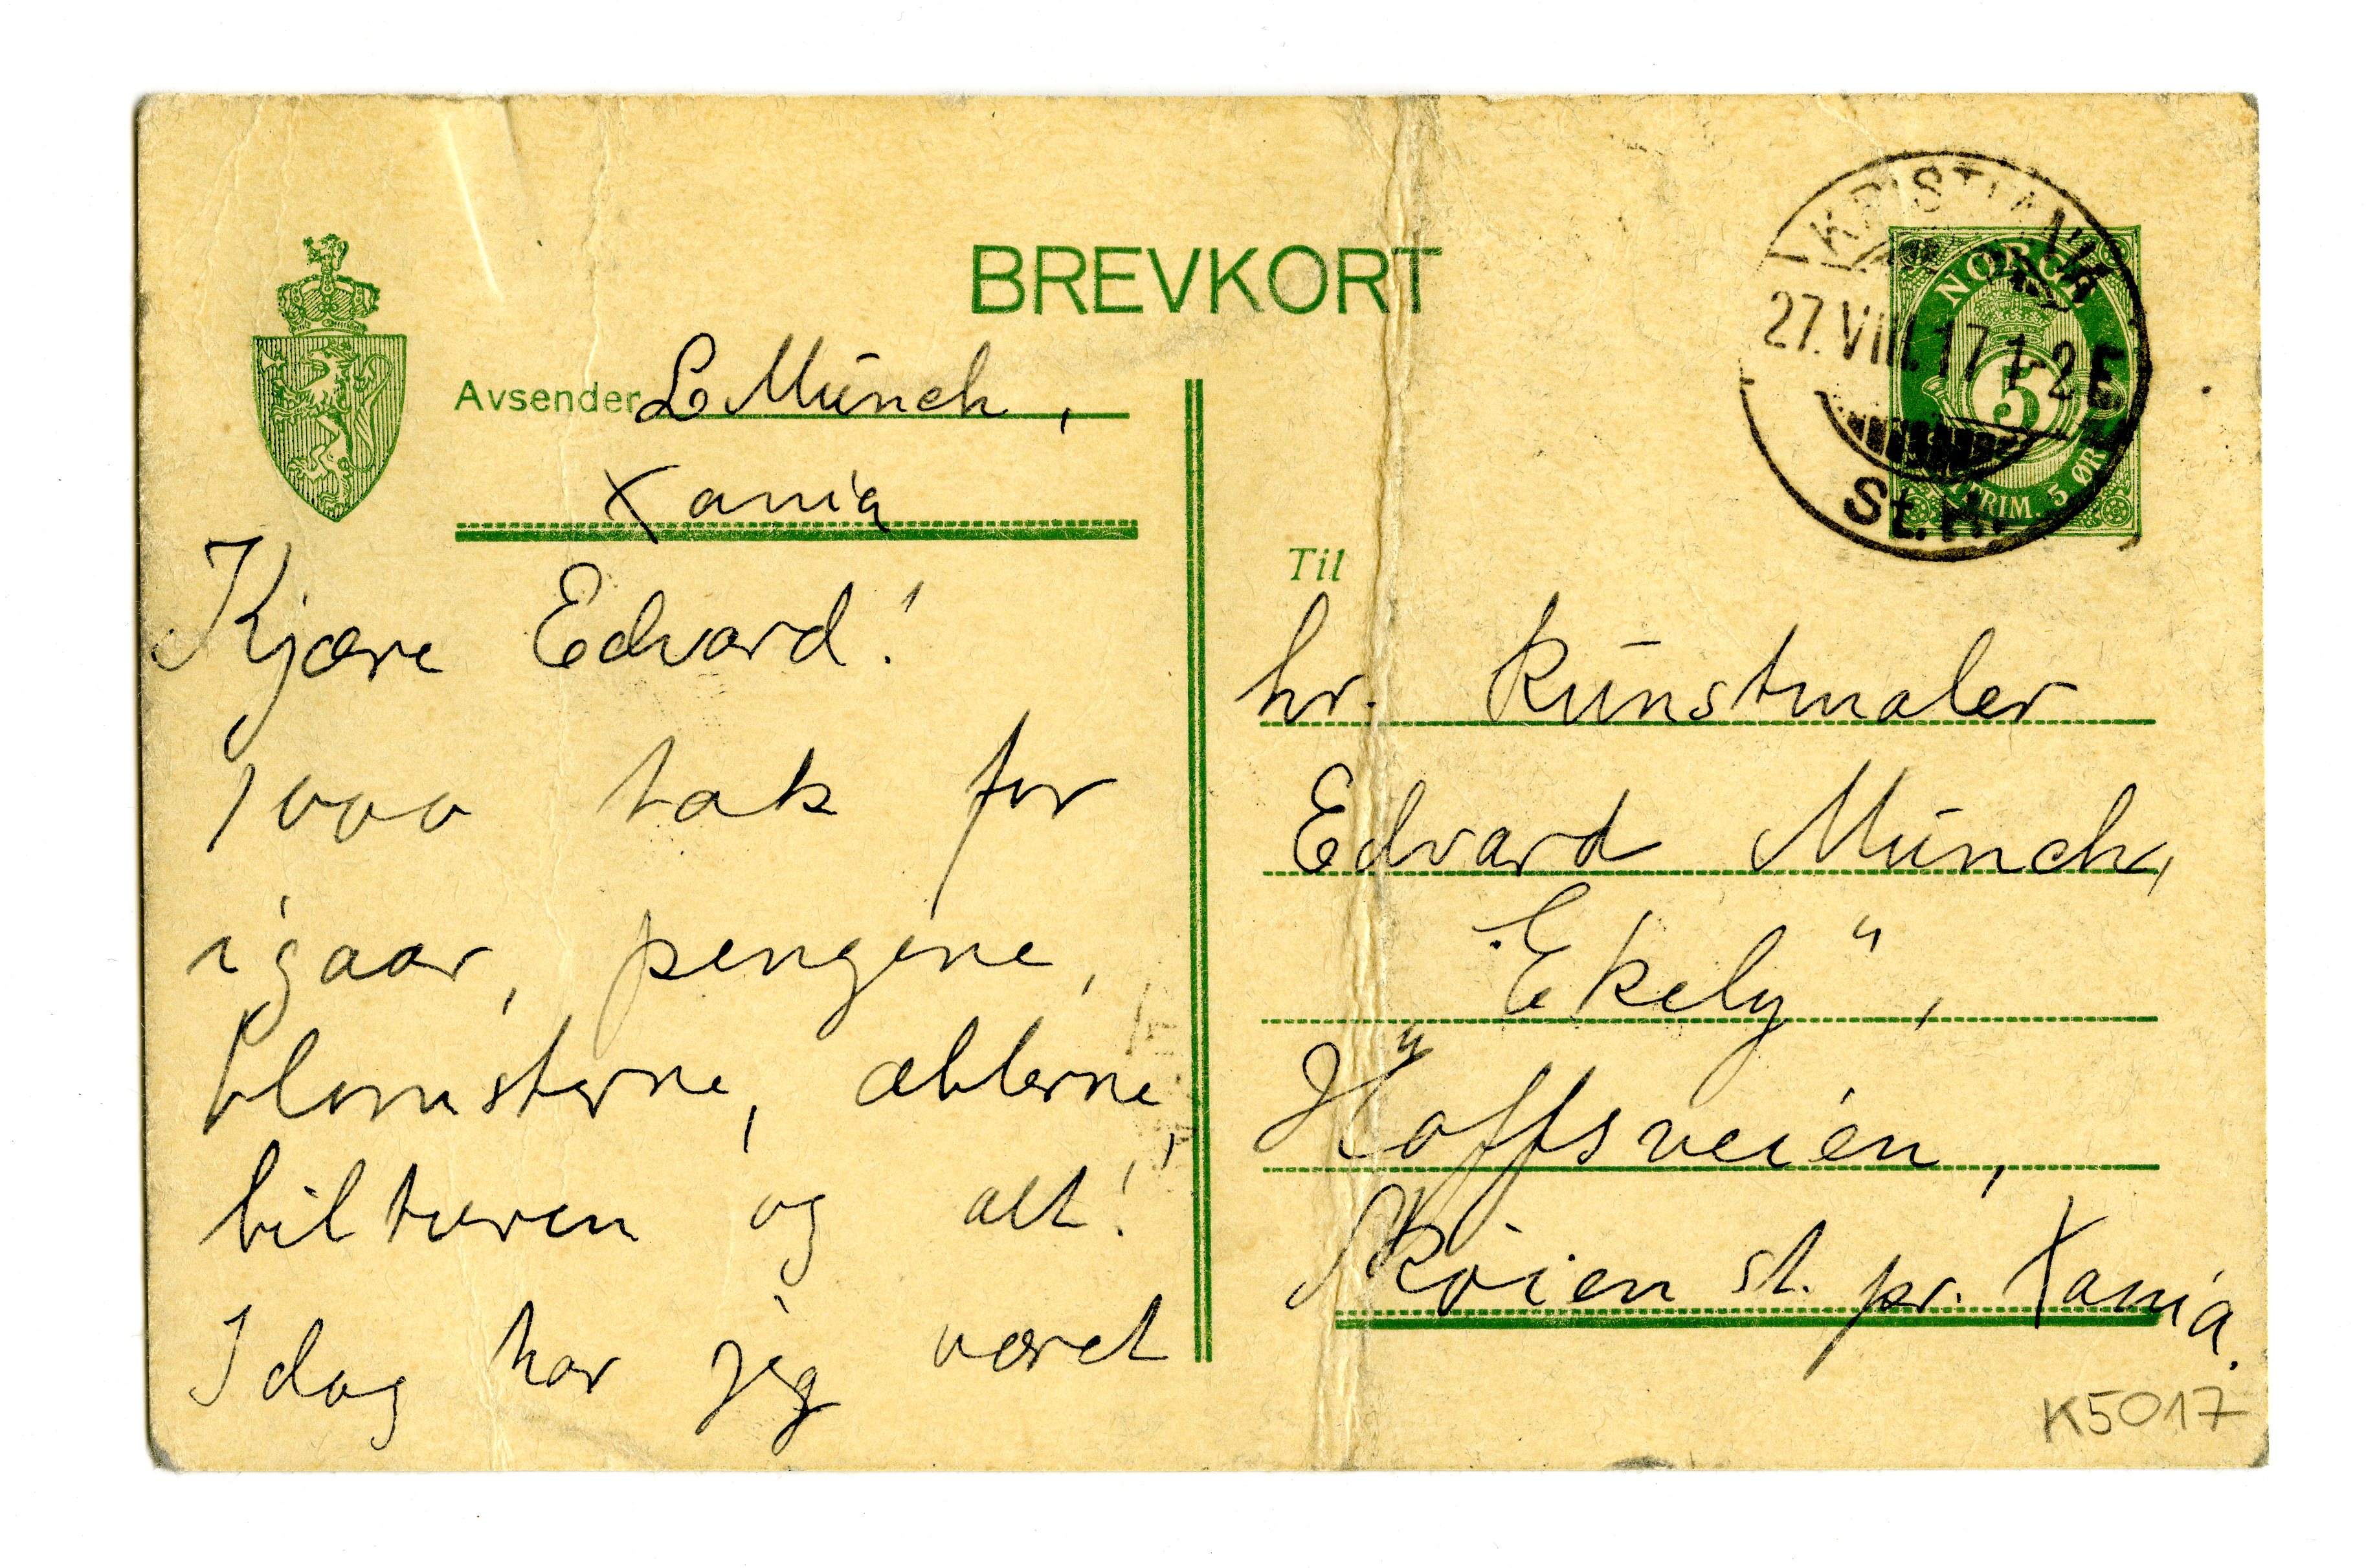 BREVKORT
Avsender L Münch,
Xania
Kjære Edvard!
1000 tak for
igaar, pengene,
blomsterne, æblerne,
bilturen og alt!
Idag har jeg været
KRISTIANIA
27.VIII.17 1-2 E
St.H.
NORGE
5
FRIM. 5 ØRE
Til
hr. Kunstmaler
Edvard Münch,
"Ekely",
Hoffsveien,
Skøien st. pr. Xania.
K5017